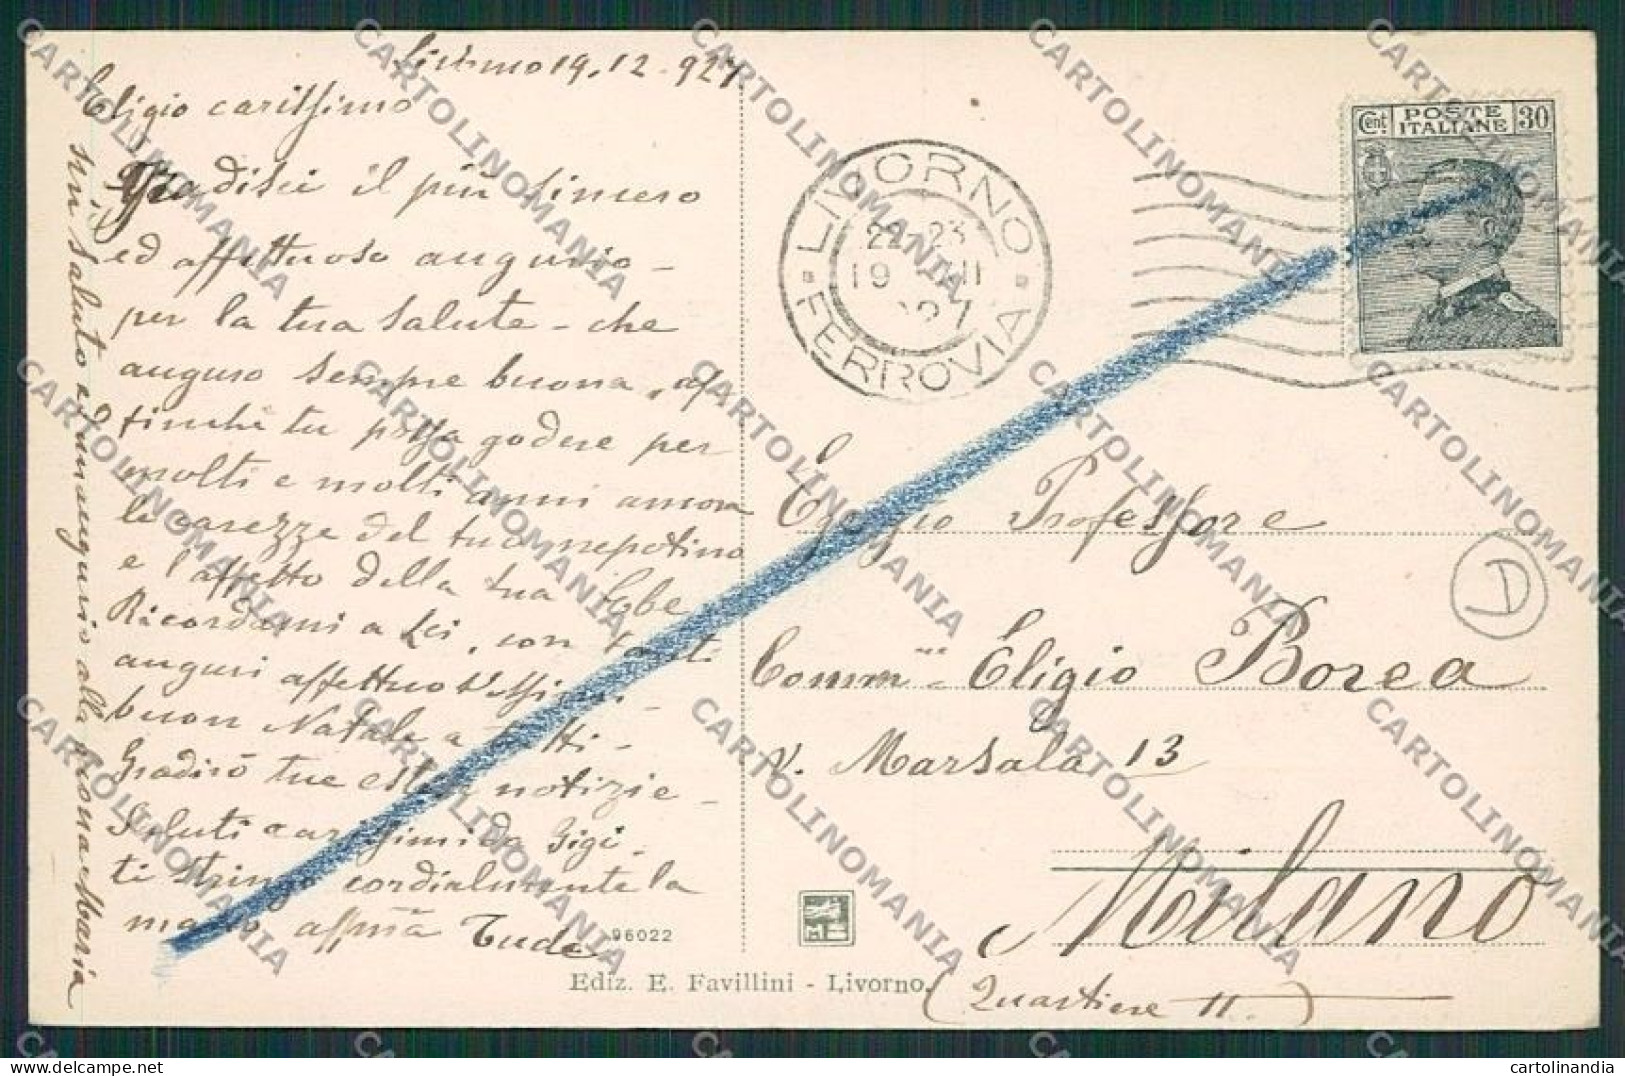 Livorno 19.12.927
Eligio carissimo
Gradisci il più sincero
ed affettuoso augurio -
per la tua salute - che
auguro sempre buona, af
finchè tu possa godere per
molti e molti anni ancora
le carezze del tuo nepotino
e l'affetto della tua Ebe
Ricordami a Lei, con tanti
auguri affettuosissimi -
buon Natale a tutti -
Gradirò tue estese notizie -
Saluti carissimi da Gigi,
ti stringo cordialmente la
mano affma Tude
un saluto ed un augurio alla buona Maria
96022
Ediz. E. Favillini - Livorno.
LIVORNO
22-23
19 XII
927
FERROVIA
Cent. POSTE ITALIANE 30
Egregio Professore
D
Comm. Eligio Borea
V. Marsala 13
Milano
(Quartiere 11.)
CARTOLINOMANIA
cartolinandia